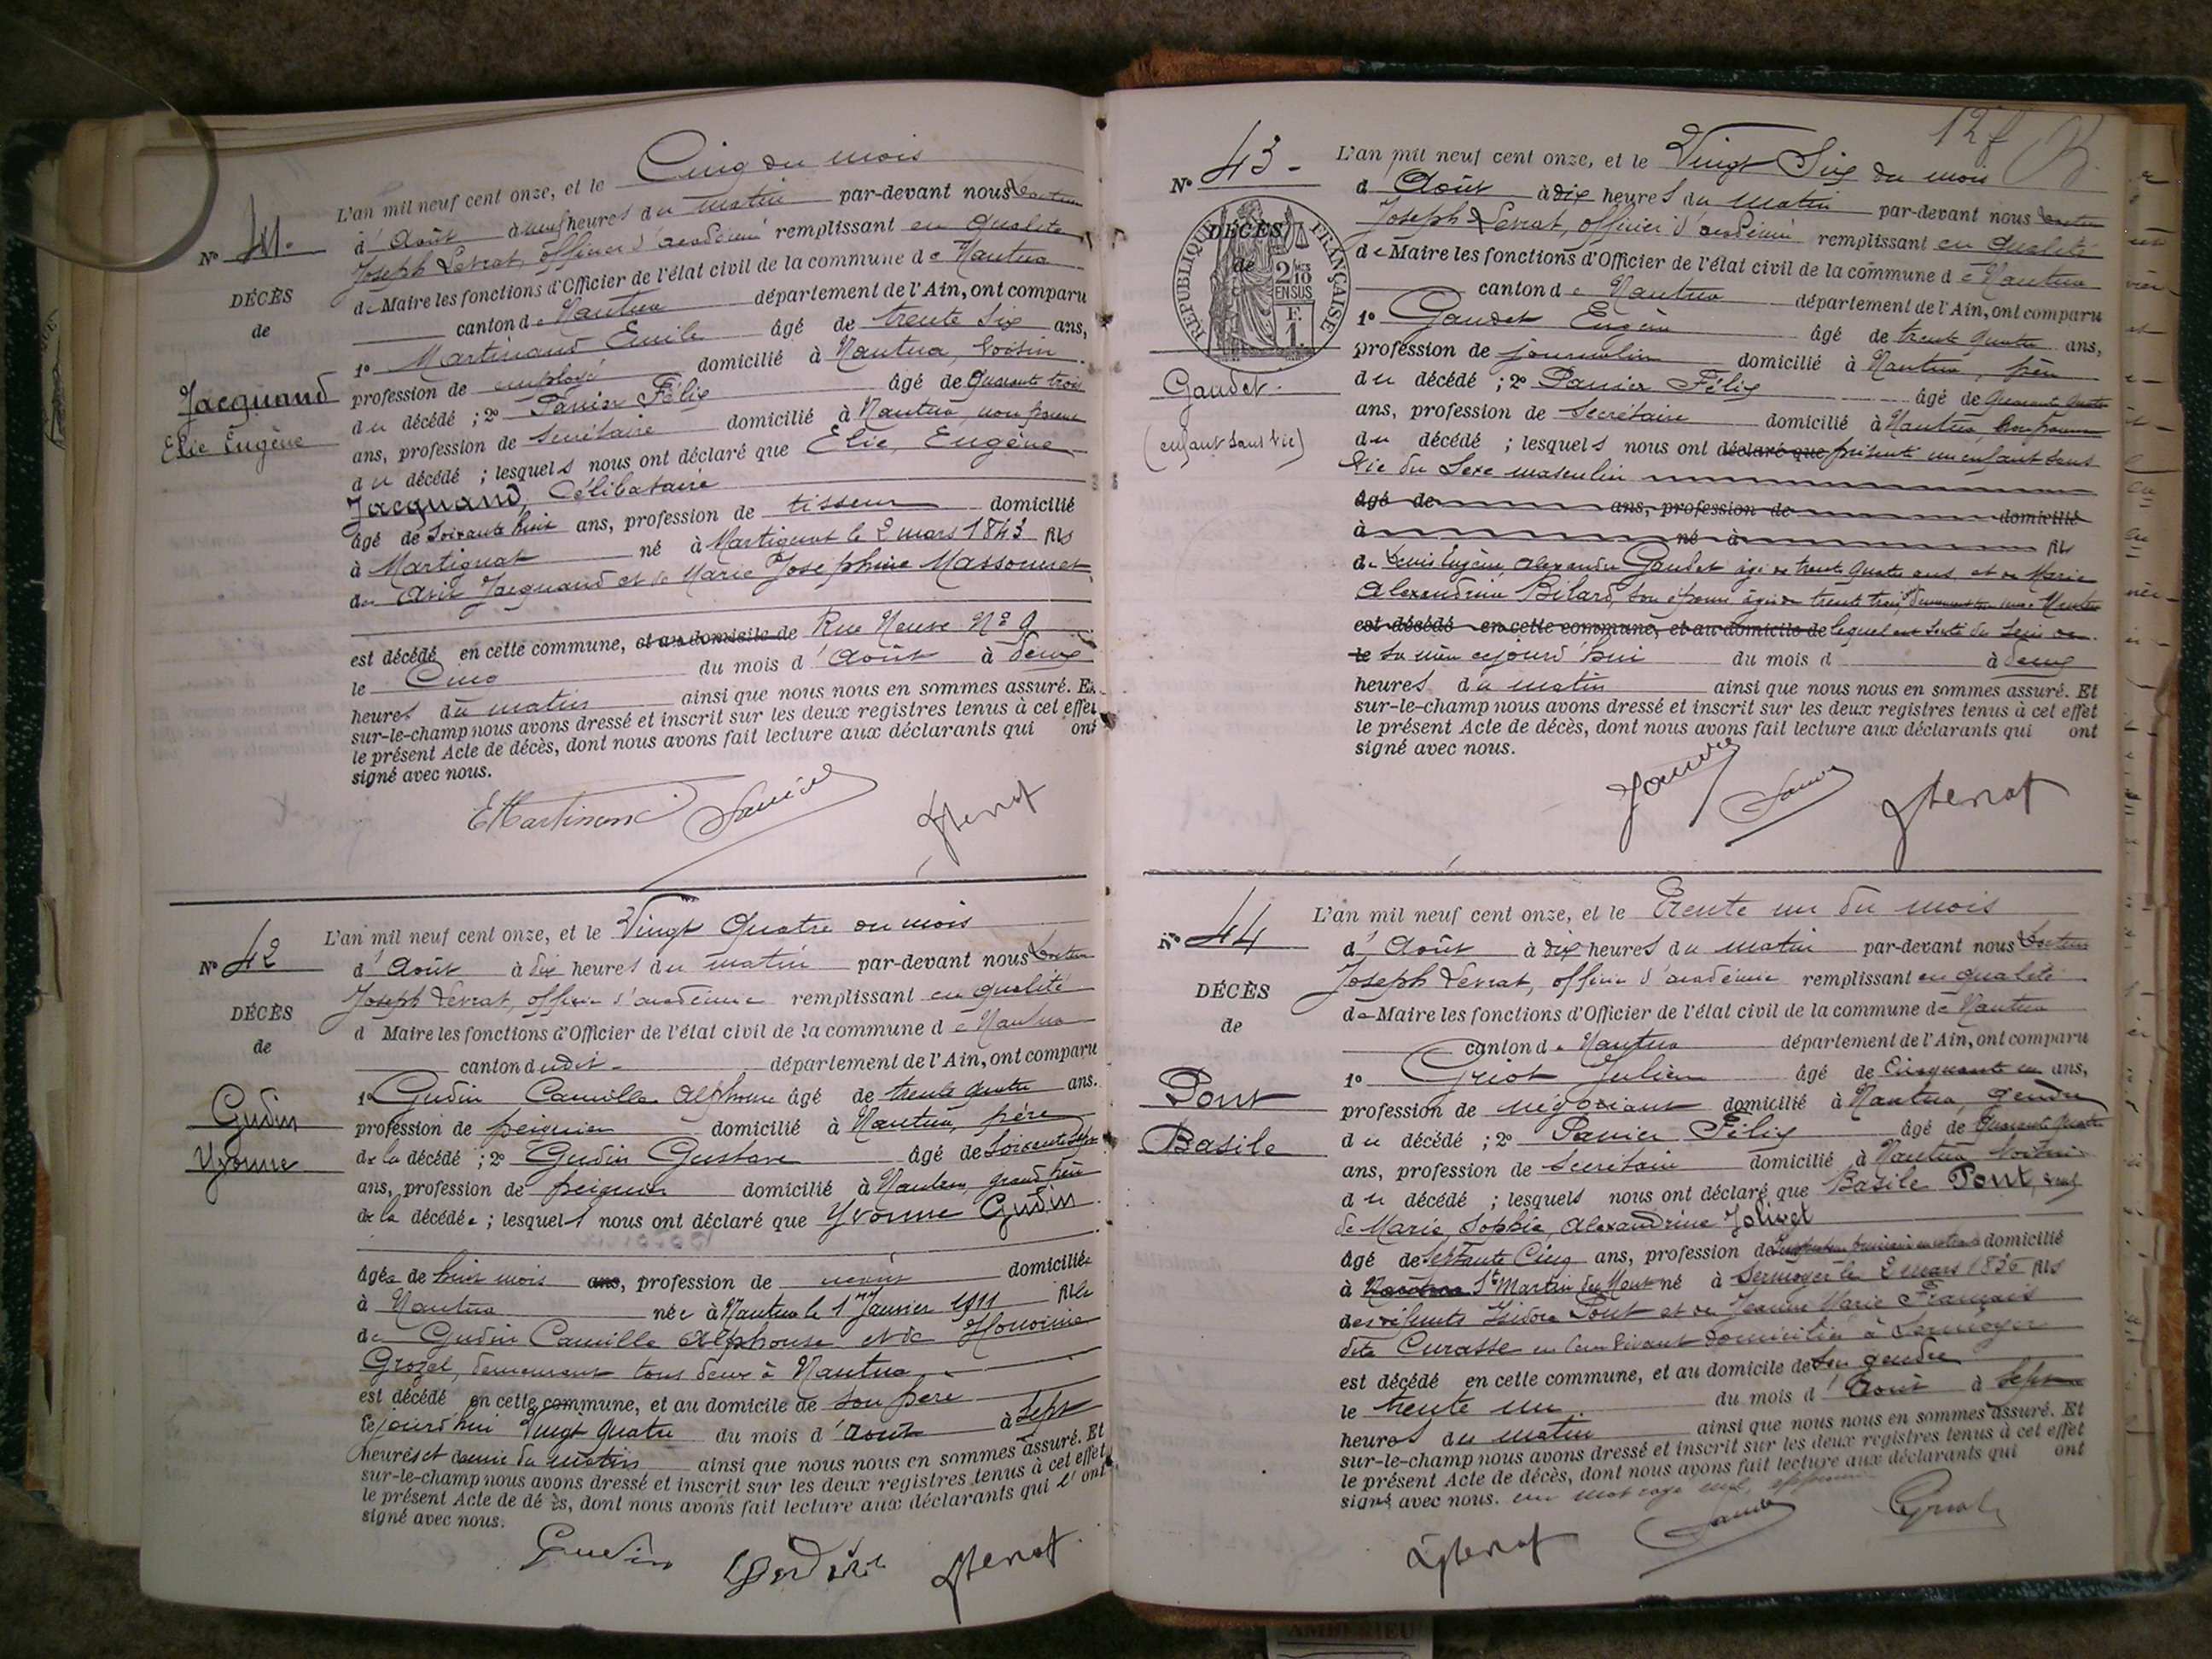 Nº 41.
DÉCÈS
de
Jacquand
Elie Eugène
L'an mil neuf cent onze, et le Cinq du mois
d'Août à neuf heures du matin par-devant nous Docteur
Joseph Levrat, officier d'académie remplissant en qualité
de Maire les fonctions d'Officier de l'état civil de la commune de Nantua
canton de Nantua département de l'Ain, ont comparu
1º Martinand Emile âgé de trente six ans,
profession de employé domicilié à Nantua, voisin
du décédé ; 2º Panier Félix âgé de quarante trois
ans, profession de Secrétaire domicilié à Nantua, non parent
du décédé ; lesquels nous ont déclaré que Elie, Eugène
Jacquand, Célibataire
âgé de Soixante huit ans, profession de tisseur domicilié
à Martignat né à Martignat le 2 mars 1843 fils
de Jacquand et de Marie Joséphine Massonnet
est décédé en cette commune, et au domicile de Rue Neuve Nº 9
le Cinq du mois d'Août à deux
heures du matin ainsi que nous nous en sommes assuré. Et
sur-le-champ nous avons dressé et inscrit sur les deux registres tenus à cet effet
le présent Acte de décès, dont nous avons fait lecture aux déclarants qui ont
signé avec nous.
EMartinand Panier JLevrat
Nº 42
DÉCÈS
de
Gudin
Yvonne
L'an mil neuf cent onze, et le Vingt Quatre du mois
d'Août à dix heures du matin par-devant nous Docteur
Joseph Levrat, officier d'académie remplissant en qualité
d Maire les fonctions d'Officier de l'état civil de la commune de Nantua
canton dudit département de l'Ain, ont comparu
1º Gudin Camille Alphonse âgé de trente quatre ans.
profession de peignier domicilié à Nantua, père
de la décédé ; 2º Gudin Gustave âgé de Soixante sept
ans, profession de peignier domicilié à Nantua, grand père
de la décédée ; lesquels nous ont déclaré que Yvonne Gudin
âgée de huit mois ans, profession de néant domiciliée
à Nantua née à Nantua le 1er Janvier 1911 fille
de Gudin Camille Alphonse et de Honorine
Grozel, demeurant tous deux à Nantua
est décédé en cette commune, et au domicile de son père
cejourd'hui Vingt quatre du mois d'août à Sept
heures et demie du matin ainsi que nous nous en sommes assuré. Et
sur-le-champ nous avons dressé et inscrit sur les deux registres tenus à cet effet
le présent Acte de dé ès, dont nous avons fait lecture aux déclarants qui l'ont
signé avec nous.
Gudin Gudin JLevrat
12 f
Nº 43
DÉCÈS
de
RÉPUBLIQUE FRANÇAISE
2/10 EN SUS
F. 1.
Gaudet
(enfant sans vie)
L'an mil neuf cent onze, et le Vingt Six du mois
d'Août à dix heures du matin par-devant nous Docteur
Joseph Levrat, officier d'académie remplissant en qualité
de Maire les fonctions d'Officier de l'état civil de la commune de Nantua
canton de Nantua département de l'Ain, ont comparu
1º Gaudet Eugène âgé de trente quatre ans,
profession de journalier domicilié à Nantua, père
du décédé ; 2º Panier Félix âgé de quarante quatre
ans, profession de Secrétaire domicilié à Nantua, non parent
du décédé ; lesquels nous ont déclaré que présenté un enfant sans
vie du Sexe masculin
âgé de ans, profession de domicilié
à né à fils
de Eugène Alexandre Gaudet âgé de trente quatre ans, et de Marie
Alexandrine Bilard, son épouse âgée de trente trois
est décédé en cette commune, et au domicile de lequel est sorti du sein de
le sa mère cejourd'hui du mois d à deux
heures du matin ainsi que nous nous en sommes assuré. Et
sur-le-champ nous avons dressé et inscrit sur les deux registres tenus à cet effet
le présent Acte de décès, dont nous avons fait lecture aux déclarants qui ont
signé avec nous.
Panier JLevrat
Nº 44
DÉCÈS
de
Pont
Basile
L'an mil neuf cent onze, et le Trente un du mois
d'Août à dix heures du matin par-devant nous Docteur
Joseph Levrat, officier d'académie remplissant en qualité
de Maire les fonctions d'Officier de l'état civil de la commune de Nantua
canton de Nantua département de l'Ain, ont comparu
1º Griot Julien âgé de Cinquante un ans,
profession de négociant domicilié à Nantua, gendre
du décédé ; 2º Panier Félix âgé de quarante quatre
ans, profession de Secrétaire domicilié à Nantua voisin
du décédé ; lesquels nous ont déclaré que Basile Pont, veuf
de Marie, Sophie, Alexandrine Jolivet
âgé de Septante Cinq ans, profession de domicilié
à Nantua St Martin du Mont né à Sermoyer le 2 mars 1836 fils
des défunts Isidore Pont et de Jeanne Marie Français
dite Curasse en leur vivant domiciliés à Sermoyer
est décédé en cette commune, et au domicile de son gendre
le trente un du mois d'Août à Sept
heures du matin ainsi que nous nous en sommes assuré. Et
sur-le-champ nous avons dressé et inscrit sur les deux registres tenus à cet effet
le présent Acte de décès, dont nous avons fait lecture aux déclarants qui ont
signé avec nous. un mot rayé nul, approuvé
JLevrat Panier Griot
AMBERIEU